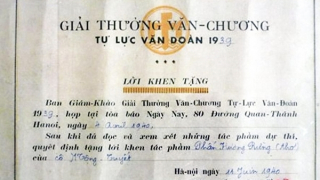 GIẢI THƯỞNG VĂN-CHƯƠNG
TỰ LỰC VĂN ĐOÀN 1939
LỜI KHEN TẶNG
Ban Giám-Khảo Giải Thưởng Văn-Chương Tự-Lực Văn-Đoàn
1939, họp tại tòa báo Ngày Nay, 80 Đường Quan-Thánh
Hanoi, ngày 4 Avril 1940.
Sau khi đã đọc và xem xét những tác phẩm dự thi,
quyết định tặng lời khen tác phẩm (thơ)
của cô
Hà-nội ngày Juin 1940